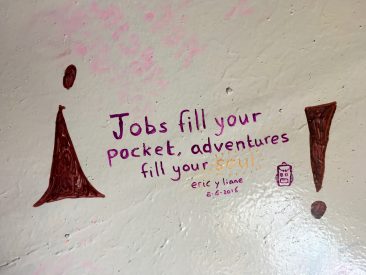 ¡ Jobs fill your
pocket, adventures
fill your soul. !
eric y liane
6-6-2016